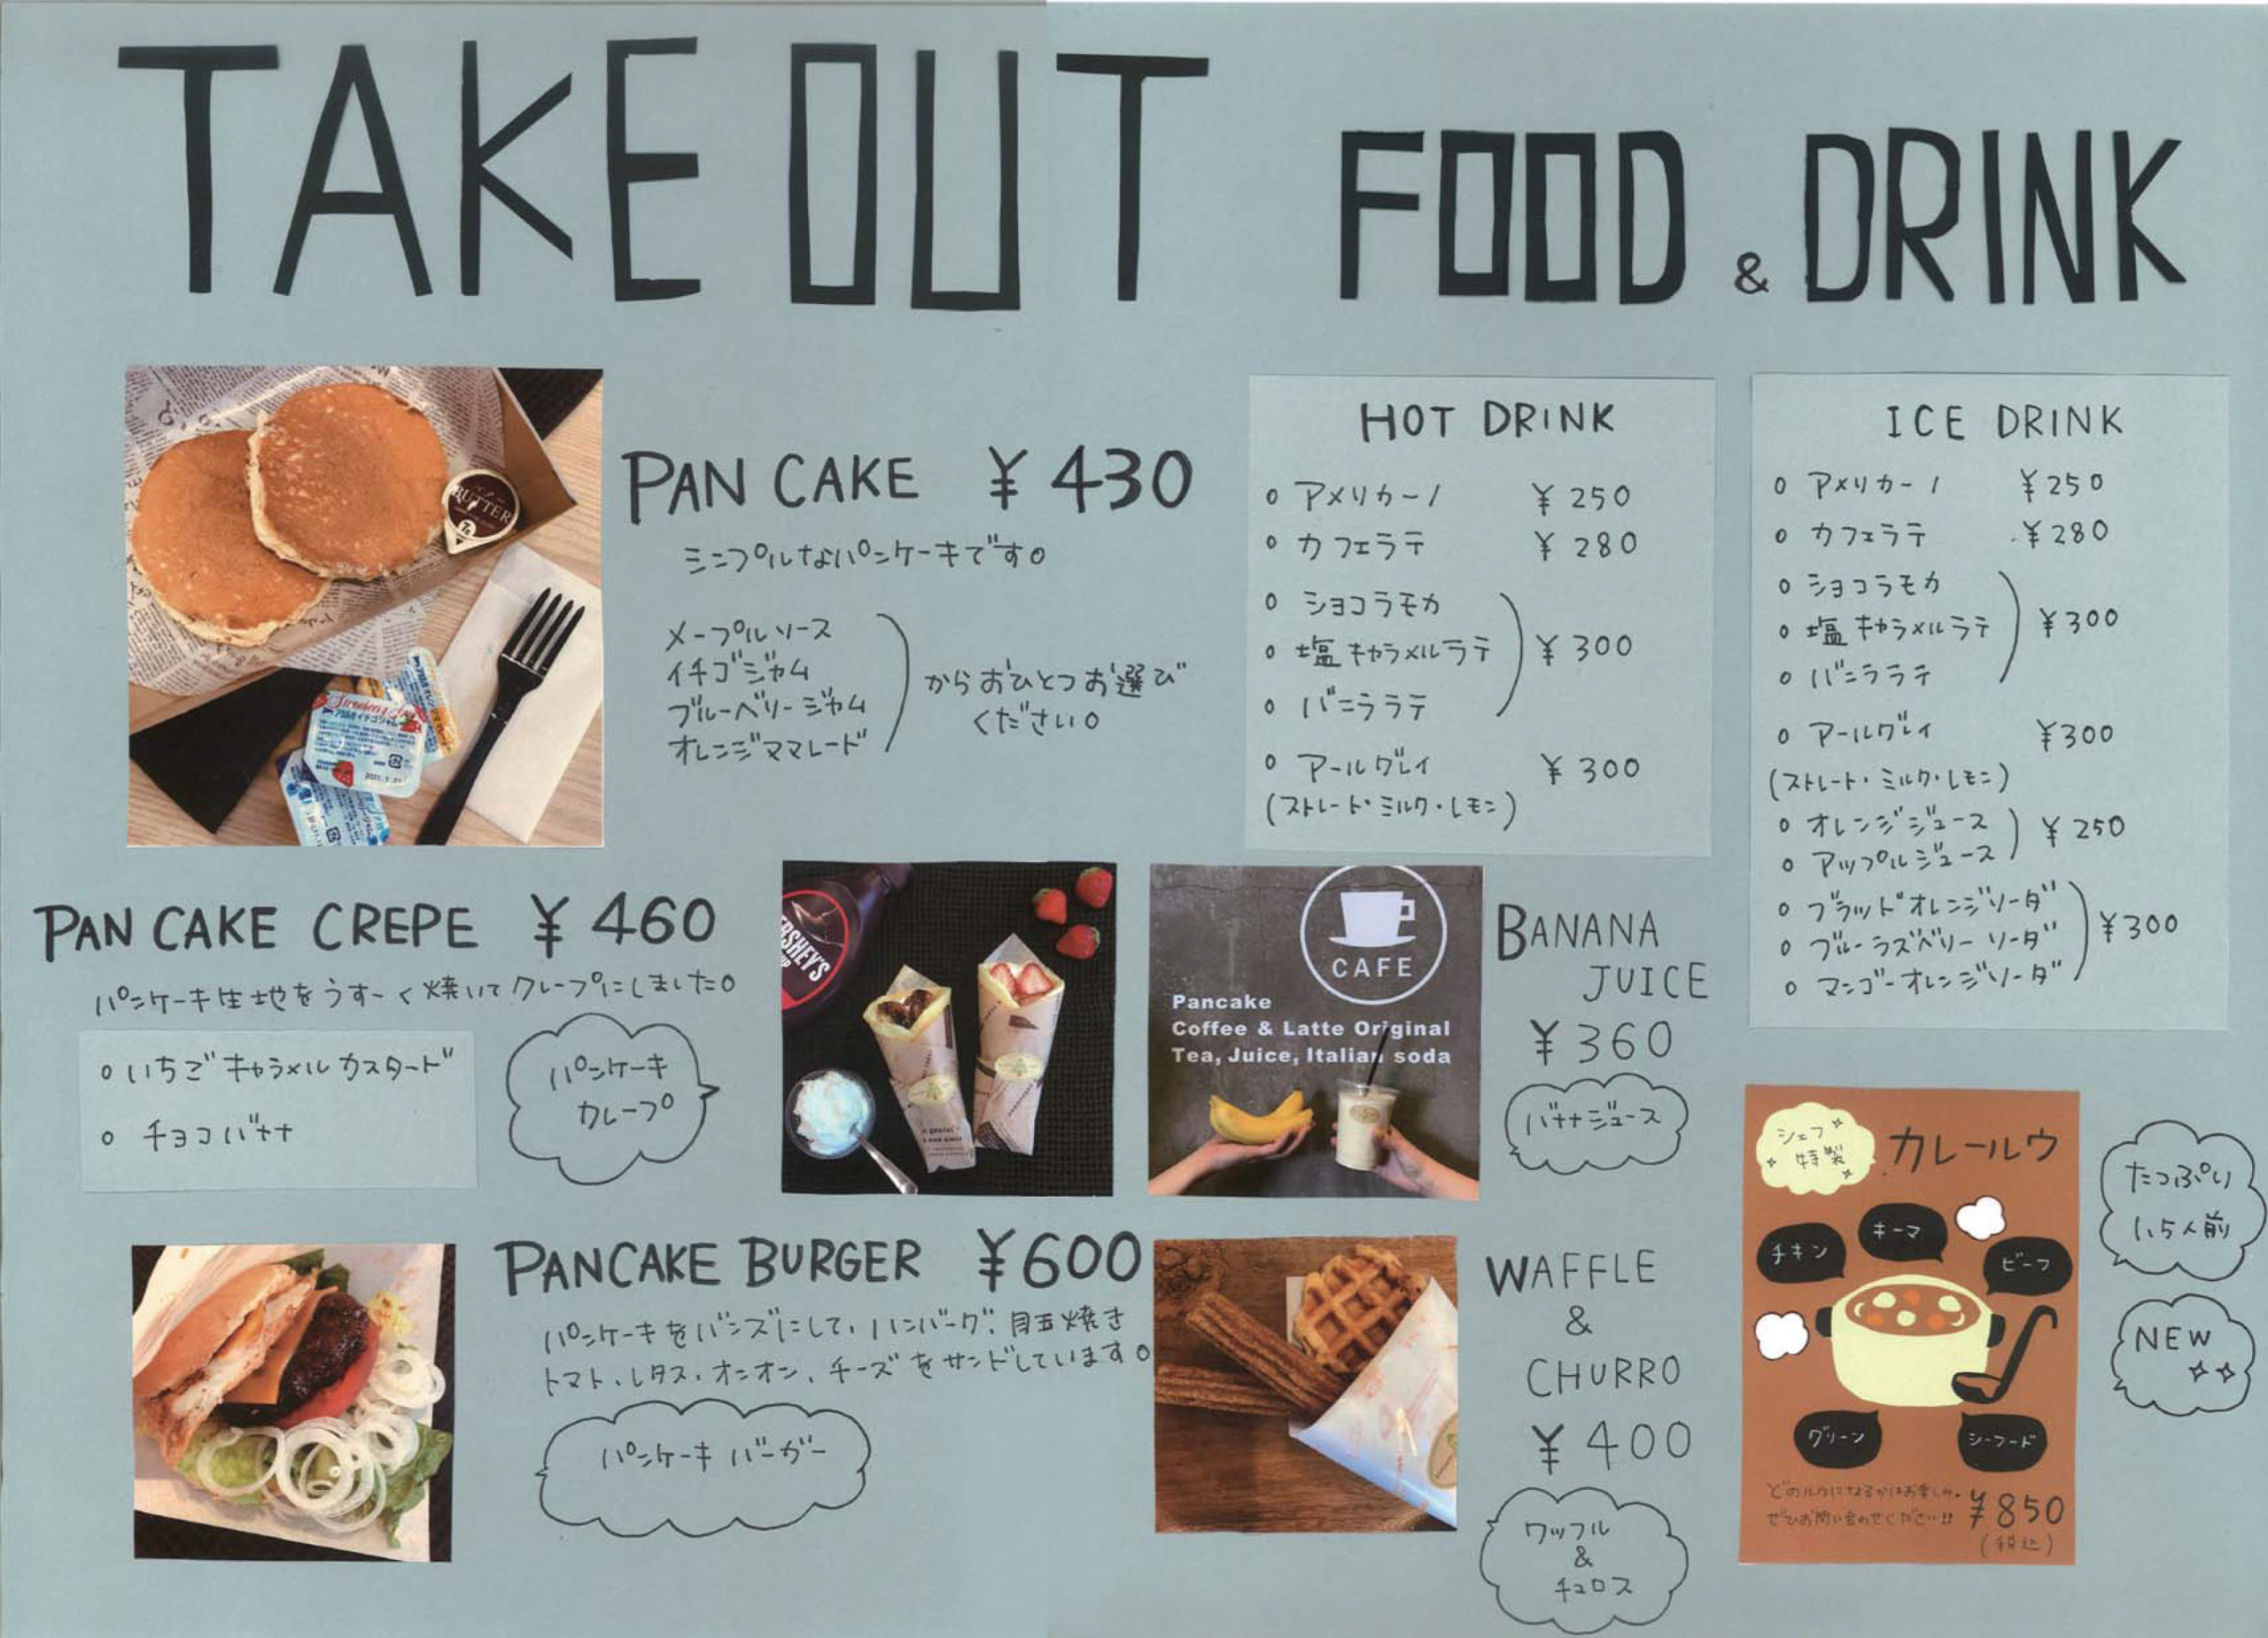 TAKE OUT FOOD & DRINK
PAN CAKE ¥430
シンプルなパンケーキです。
メープルソース
イチゴジャム
ブルーベリージャム
オレンジママレード
からおひとつお選び
ください。
BUTTER
HOT DRINK
アメリカーノ ¥250
カフェラテ ¥280
ショコラモカ
塩キャラメルラテ ¥300
バニララテ
アールグレイ ¥300
(ストレート・ミルク・レモン)
ICE DRINK
アメリカーノ ¥250
カフェラテ ¥280
ショコラモカ
塩キャラメルラテ ¥300
バニララテ
アールグレイ ¥300
(ストレート・ミルク・レモン)
オレンジジュース ¥250
アップルジュース
ブラッドオレンジソーダ
ブルーラズベリーソーダ ¥300
マンゴーオレンジソーダ
PAN CAKE CREPE ¥460
パンケーキ生地をうすーく焼いてクレープにしました。
いちごキャラメルカスタード
チョコバナナ
パンケーキ
クレープ
HERSHEY'S
CAFE
Pancake
Coffee & Latte Original
Tea, Juice, Italian soda
BANANA
JUICE
¥360
バナナジュース
PANCAKE BURGER ¥600
パンケーキをバンズにして、ハンバーグ、目玉焼き
トマト、レタス、オニオン、チーズをサンドしています。
パンケーキバーガー
WAFFLE
&
CHURRO
¥400
ワッフル
&
チュロス
シェフ
特製
カレールウ
チキン
キーマ
ビーフ
グリーン
シーフード
どのルウになるかはお楽しみ。
ぜひお問い合わせください!! ¥850
(税込)
たっぷり
1.5人前
NEW